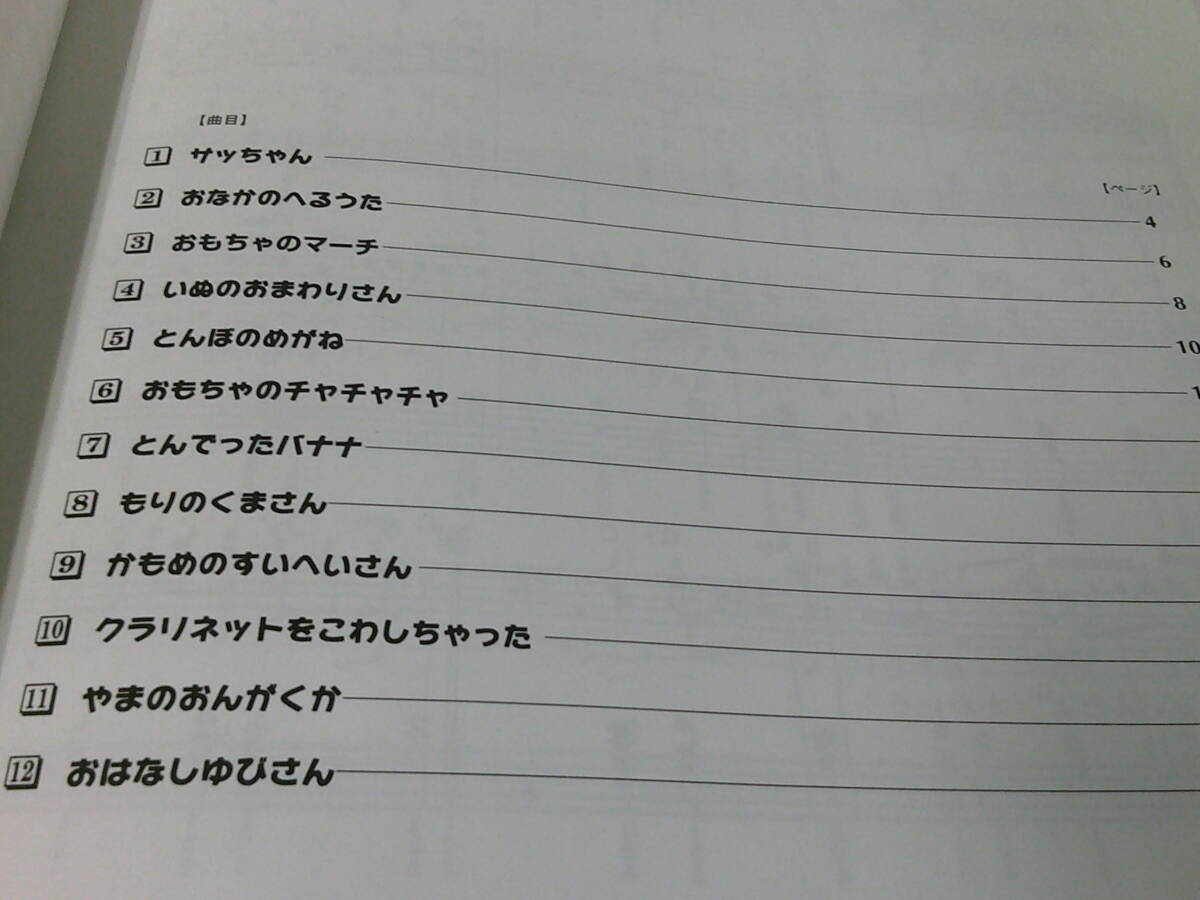 【曲目】
【ページ】
1 サッちゃん 4
2 おなかのへるうた 6
3 おもちゃのマーチ 8
4 いぬのおまわりさん 10
5 とんぼのめがね
6 おもちゃのチャチャチャ
7 とんでったバナナ
8 もりのくまさん
9 かもめのすいへいさん
10 クラリネットをこわしちゃった
11 やまのおんがくか
12 おはなしゆびさん